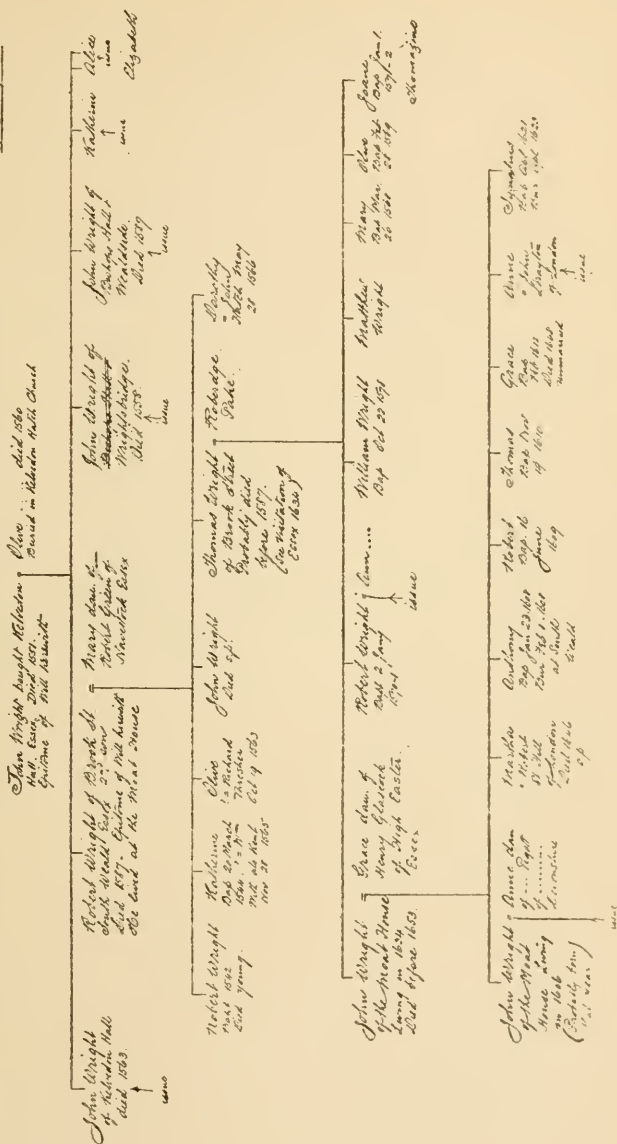 John Wright bought Kelvedon
Hall. Essex. Died 1551.
Epitome of Will herewith
Olive ... died 1560
Buried in Kelvedon Hatch Church
John Wright
of Kelvedon Hall
died 1563.
issue
Robert Wright of Brook St
South Weald Essex 2nd son
Died 1587. Epitome of Will herewith
He lived at the Moat House
=
Mary dau. of
Robert Green of
Navestock Essex
John Wright of
Wrightsbridge.
Died 1558.
issue
John Wright of
Hall
Wealdside.
Died 1559
issue
Katherine
issue
Alice
issue
Elizabeth
Robert Wright
1542
Died young.
Katherine
Bap 20 March
1544
Kent
Nov 28 1565
Olive
= Richard
Thresher
Oct 19 1563
John Wright
Died s.p.
Thomas Wright
of Brook Street
Probably died
before 1587.
(See Visitation of
Essex 1634)
=
Dorothy
= John
May
28 1566
John Wright
of the Moat House
Living in 1634
Died before 1653.
=
Grace dau. of
Henry Glascock
of High Easter.
Essex
Robert Wright
Ann ...
issue
William Wright
Bap Oct 22 1571
Matthew
Wright
Mary
Bap Mar.
20 1568
Olive
28 1569
Joane
Bap Jan 1.
1571-2
Thomazine
John Wright
of the Moat
House living
in 1606
(Probably born
that year)
=
Anne dau
of ... Pight
of ........
issue
Martha
= Robert
Hill
of London
Died 1646
s.p.
Anthony
Bap Jan 23. 1608
Bur Feb 8. 1608
at South
Weald
Robert
Bap. 16
June
1609
Thomas
Bap Nov
19 1610
Grace
Bap
Feb 1612
Died 1648
unmarried
Anne
= John
Drayton
of London
issue
Bap Oct 1621
Bur Oct 1623